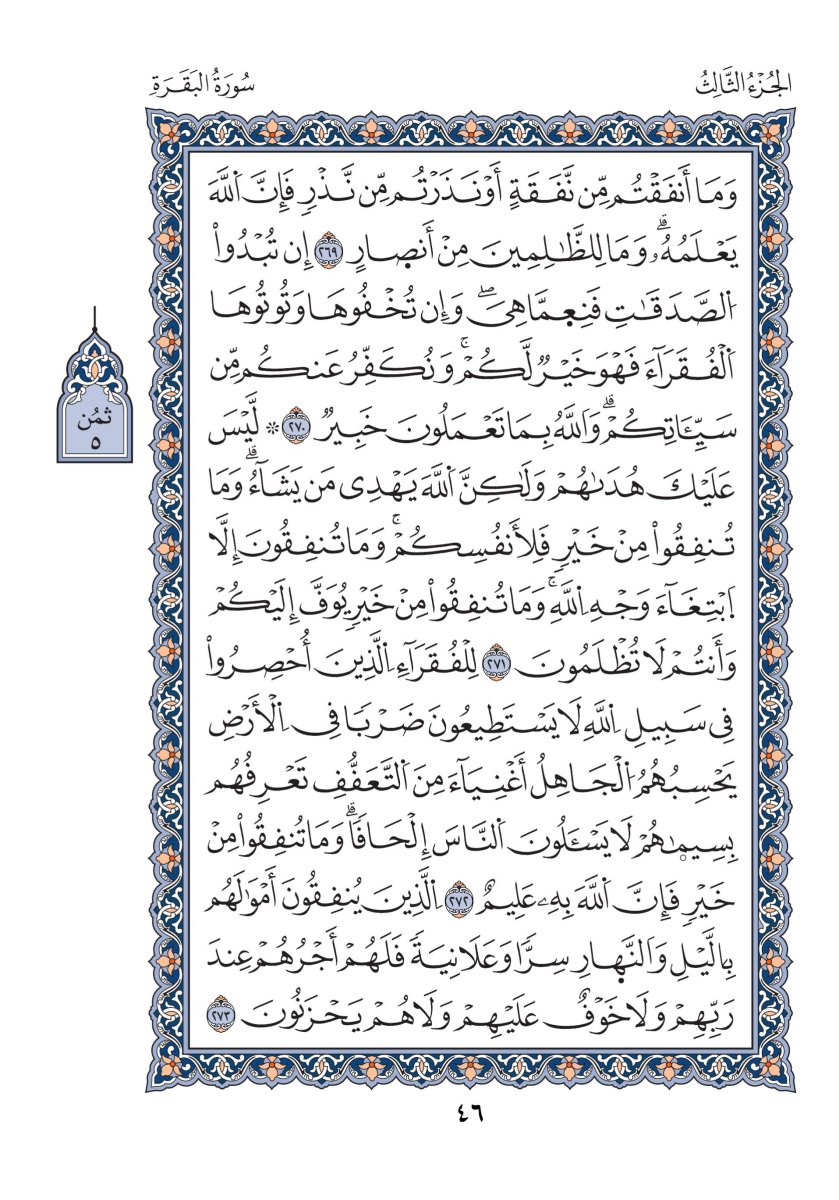 الجُزْءُ الثَّالِثُ
سُورَةُ البَقَرَةِ
وَمَا أَنفَقْتُم مِّن نَّفَقَةٍ أَوْ نَذَرْتُم مِّن نَّذْرٍ فَإِنَّ اَ۬للَّهَ
يَعْلَمُهُۥۗ وَمَا لِلظَّٰلِمِينَ مِنْ أَنصِ۪ارٍ ٢٦٩ إِن تُبْدُواْ
اُ۬لصَّدَقَٰتِ فَنِعْمَّا هِيَۖ وَإِن تُخْفُوهَا وَتُوتُوهَا
اَ۬لْفُقَرَآءَ فَهْوَ خَيْرٌ لَّكُمْۚ وَنُكَفِّرُ عَنكُم مِّن
سَيِّـَٔاتِكُمْۗ وَاللَّهُ بِمَا تَعْمَلُونَ خَبِيرٌ ٢٧٠ ۞ لَّيْسَ
عَلَيْكَ هُدَىٰهُمْ وَلَٰكِنَّ اَ۬للَّهَ يَهْدِى مَن يَشَآءُۗ وَمَا
تُنفِقُواْ مِنْ خَيْرٍ فَلِأَنفُسِكُمْۚ وَمَا تُنفِقُونَ إِلَّا
اَ۪بْتِغَآءَ وَجْهِ اِ۬للَّهِۚ وَمَا تُنفِقُواْ مِنْ خَيْرٍ يُوَفَّ إِلَيْكُمْ
وَأَنتُمْ لَا تُظْلَمُونَ ٢٧١ لِلْفُقَرَآءِ اِ۬لَّذِينَ أُحْصِرُواْ
فِى سَبِيلِ اِ۬للَّهِ لَا يَسْتَطِيعُونَ ضَرْبًا فِى اِ۬لْأَرْضِ
يَحْسِبُهُمُ اُ۬لْجَاهِلُ أَغْنِيَآءَ مِنَ اَ۬لتَّعَفُّفِ تَعْرِفُهُم
بِسِيمٜىٰهُمْ لَا يَسْـَٔلُونَ اَ۬لنَّاسَ إِلْحَافًاۗ وَمَا تُنفِقُواْ مِنْ
خَيْرٍ فَإِنَّ اَ۬للَّهَ بِهِۦ عَلِيمٌ ٢٧٢ اِ۬لَّذِينَ يُنفِقُونَ أَمْوَٰلَهُم
بِالَّيْلِ وَالنَّه۪ارِ سِرًّا وَعَلَانِيَةً فَلَهُمْ أَجْرُهُمْ عِندَ
رَبِّهِمْ وَلَا خَوْفٌ عَلَيْهِمْ وَلَا هُمْ يَحْزَنُونَ ٢٧٣
ثُمُن
٥
٤٦